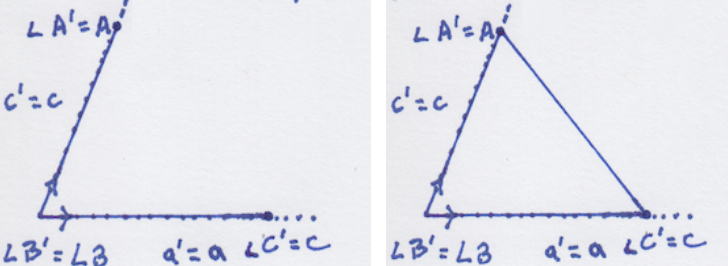 ∠A'=A
c'=c
∠B'=∠B a'=a ∠C'=C
∠A'=A
c'=c
∠B'=∠B a'=a ∠C'=C